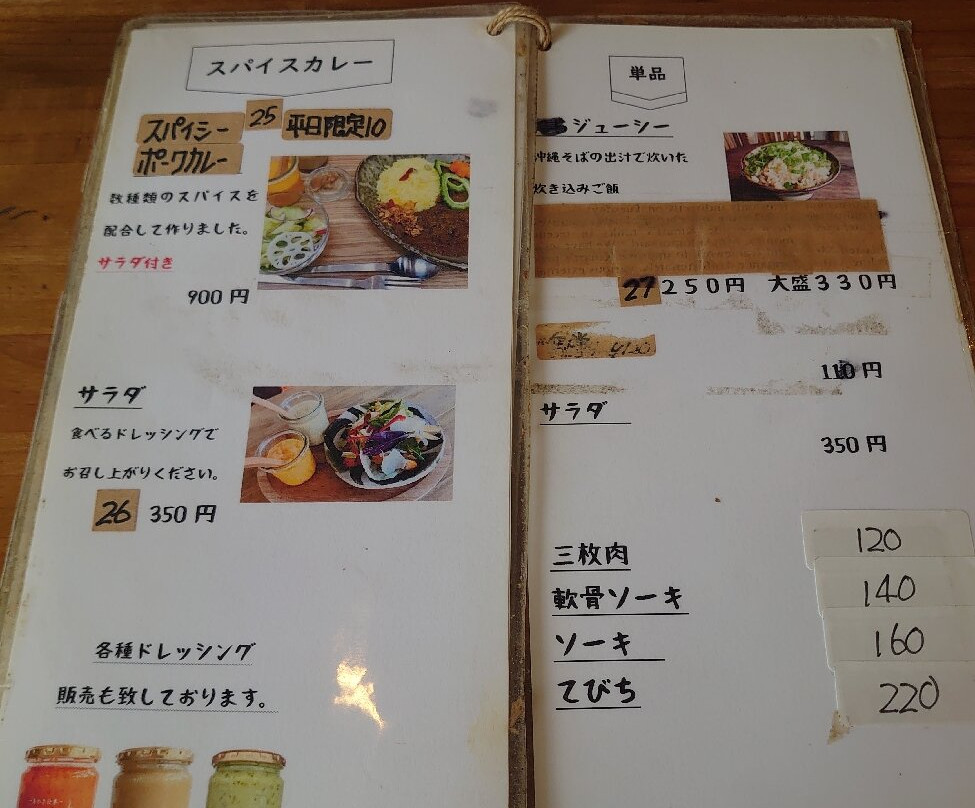 スパイスカレー
スパイシー 25 平日限定10
ポークカレー
数種類のスパイスを
配合して作りました。
サラダ付き
900円
サラダ
食べるドレッシングで
お召し上がりください。
26 350円
各種ドレッシング
販売も致しております。
単品
ジューシー
沖縄そばの出汁で炊いた
炊き込みご飯
27 250円 大盛330円
110円
サラダ
350円
三枚肉 120
軟骨ソーキ 140
ソーキ 160
てびち 220